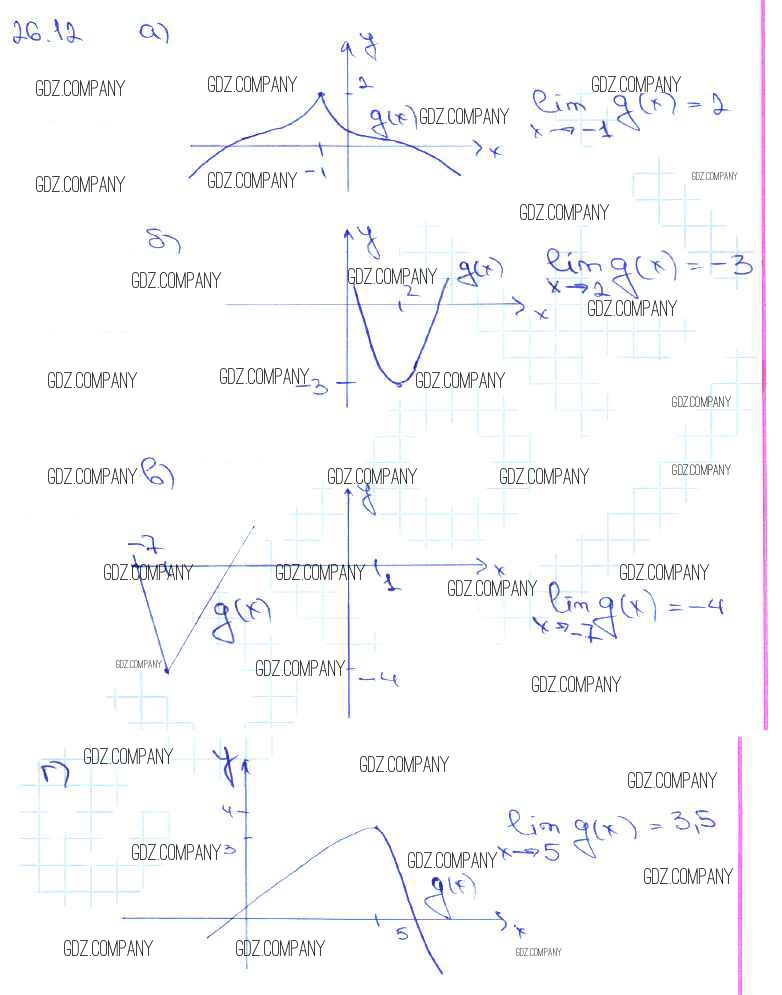 26.12 а)
y
GDZ.COMPANY GDZ.COMPANY 2 GDZ.COMPANY
g(x) GDZ.COMPANY lim g(x) = 2
x→-1
x
-1
GDZ.COMPANY GDZ.COMPANY GDZ.COMPANY
GDZ.COMPANY
б) y
GDZ.COMPANY GDZ.COMPANY g(x) lim g(x) = -3
x→2
2
x GDZ.COMPANY
GDZ.COMPANY GDZ.COMPANY -3 GDZ.COMPANY
GDZ.COMPANY
GDZ.COMPANY в) GDZ.COMPANY GDZ.COMPANY GDZ.COMPANY
y
-7
GDZ.COMPANY GDZ.COMPANY 1 x GDZ.COMPANY
GDZ.COMPANY
g(x) lim g(x) = -4
x→-7
GDZ.COMPANY GDZ.COMPANY -4
GDZ.COMPANY
г) GDZ.COMPANY y GDZ.COMPANY
GDZ.COMPANY
4
lim g(x) = 3,5
x→5
GDZ.COMPANY 3 GDZ.COMPANY
g(x) GDZ.COMPANY
5 x
GDZ.COMPANY GDZ.COMPANY GDZ.COMPANY